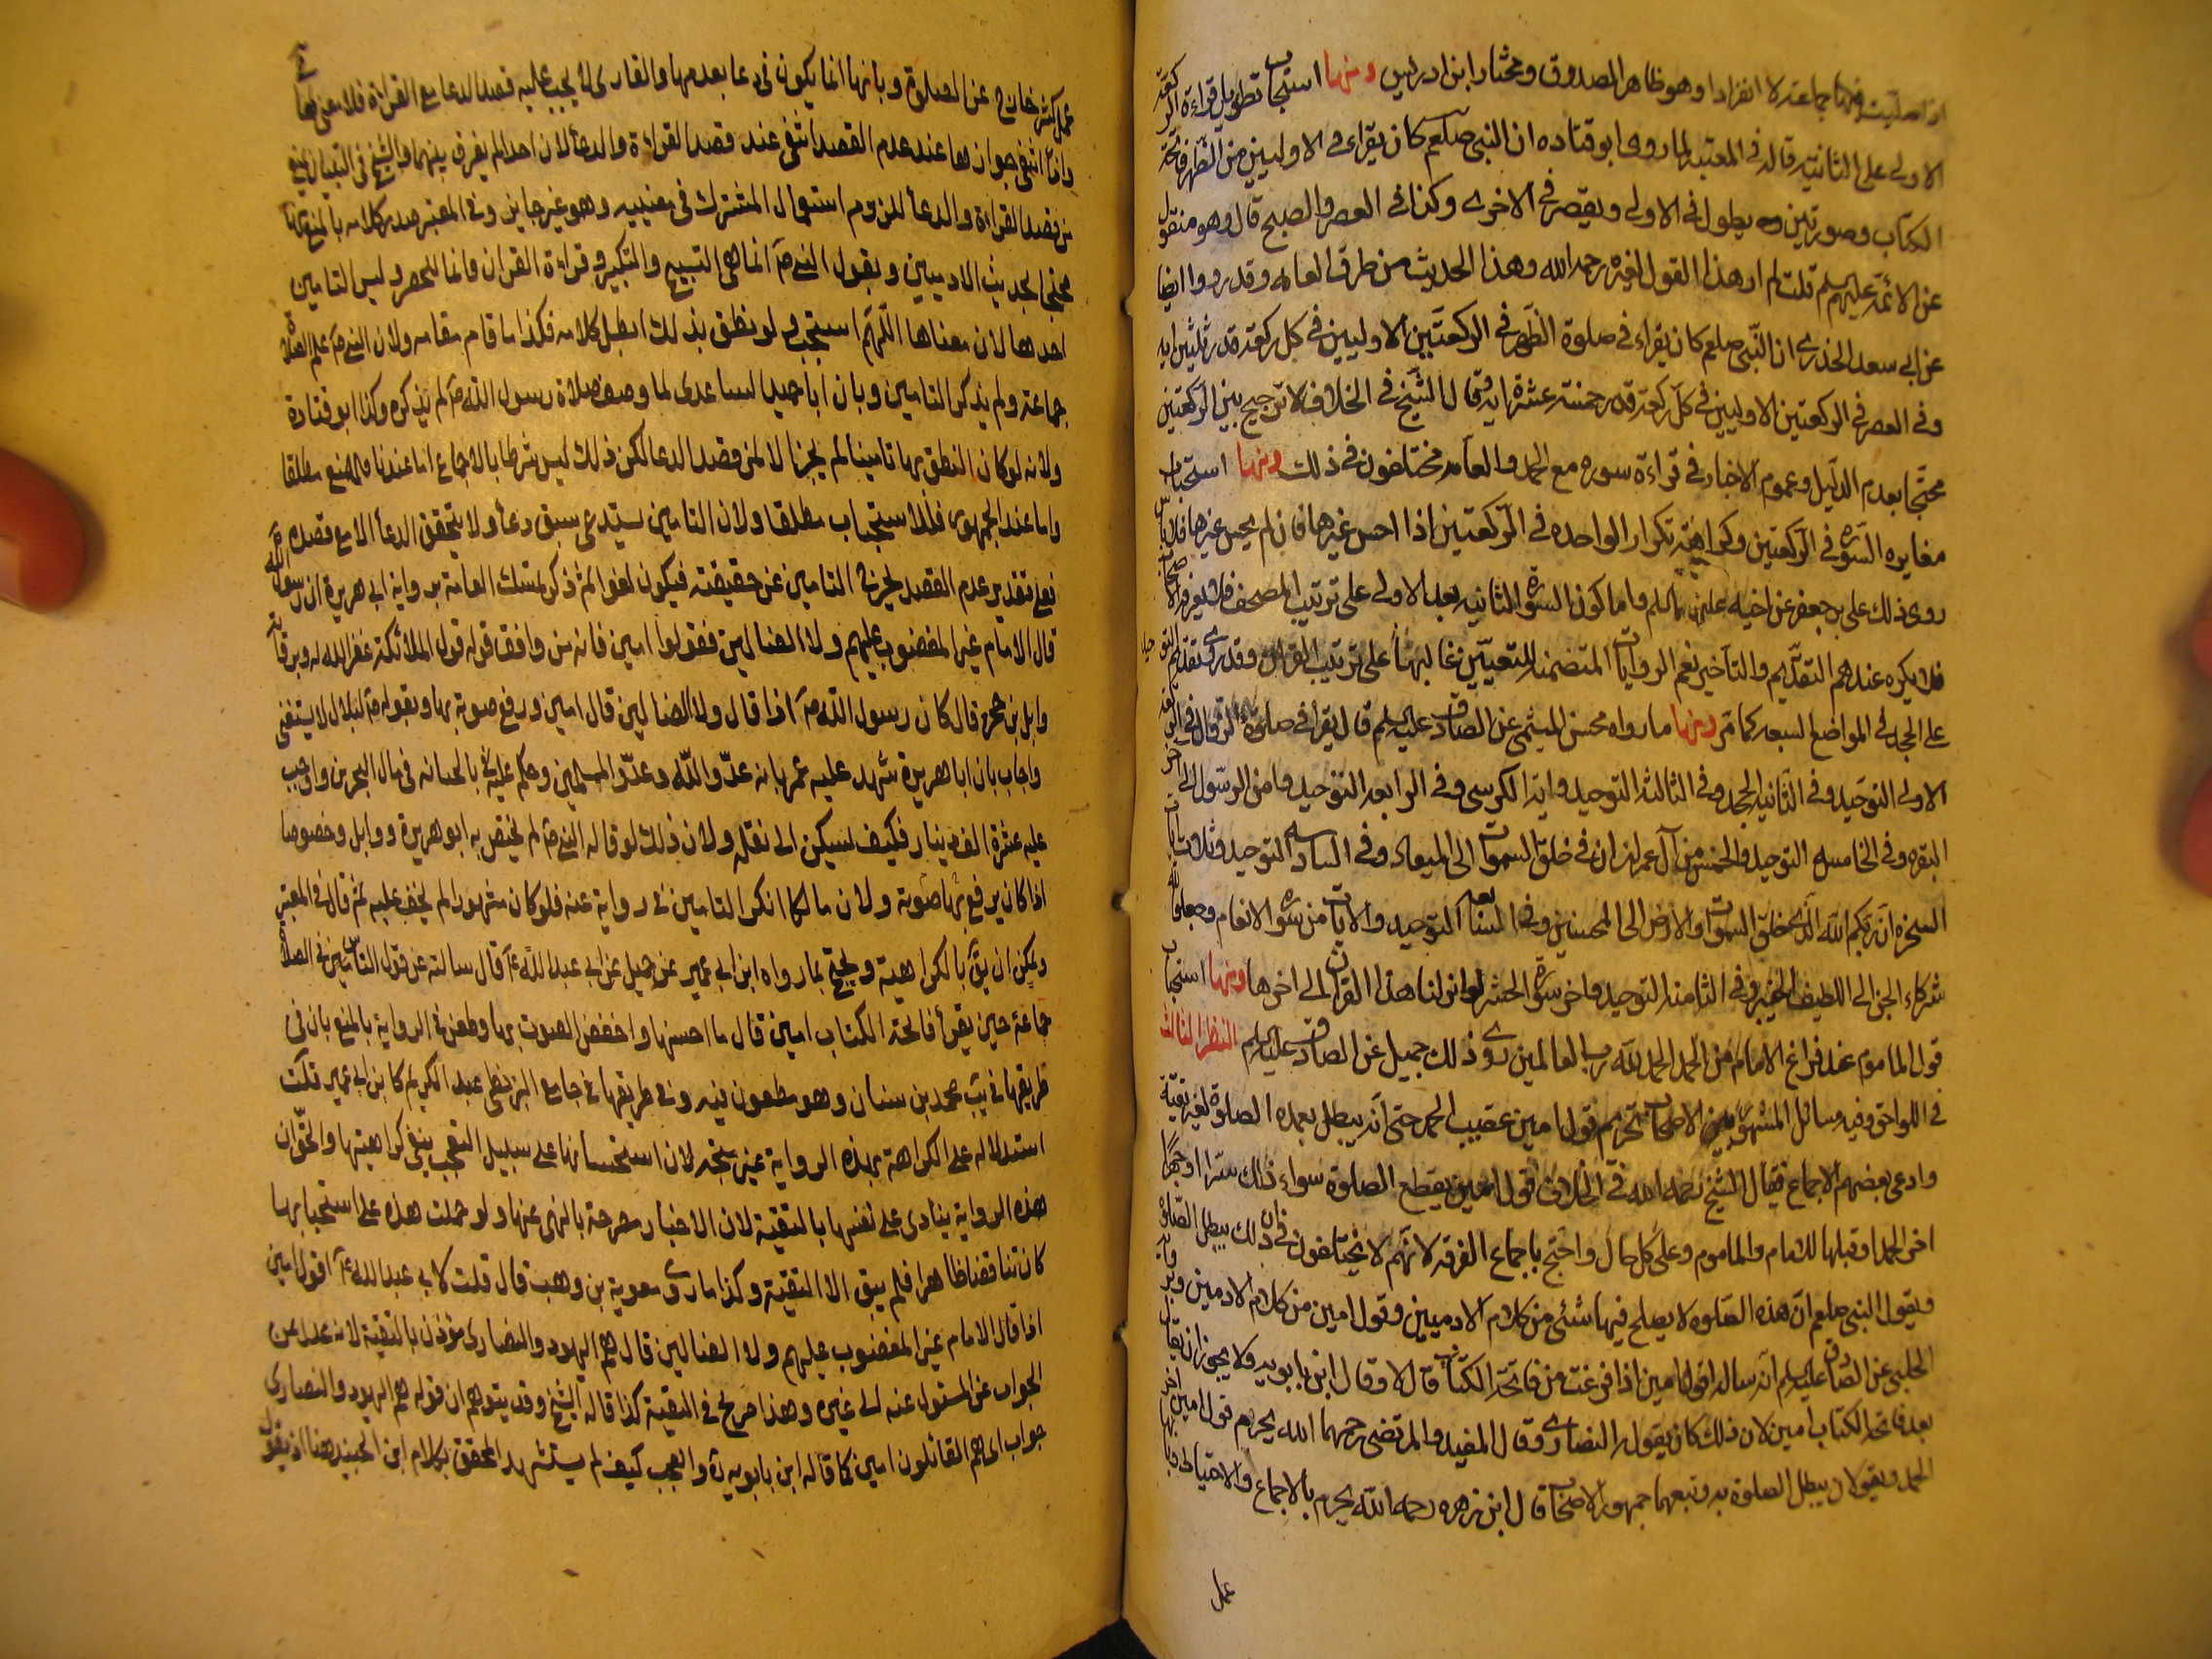 اذا صليت جماعة لا انفرادا وهو ظاهر الصدوق ومختار ابن ادريس ومنها استحباب تطويل قراءة الركعة
الاولى على الثانيه قاله في المعتبر لما روى ابو قتاده ان النبي صلعم كان يقراء في الاوليين من الظهر فاتحة
الكتاب وسورتين يطول في الاولى ويقصر في الاخرى وكذا في العصر والصبح قال وهو منقول
عن الائمة عليهم السلم قلت لم ار هذا القول لغيره رحمه الله وهذا الحديث من طرق العامه وقد رووا ايضا
عن ابي سعد الخدري ان النبي صلعم كان يقراء في صلوة الظهر في الركعتين الاوليين في كل ركعة قدر ثلثين ايه
وفي العصر في الركعتين الاوليين في كل ركعة قدر خمسة عشرة ايه وقال الشيخ في الخلاف لا ترجيح بين الركعتين
محتجا بعدم الدليل وعموم الاخبار في قراءة سوره مع الحمد والعامه مختلفون في ذلك ومنها استحباب
مغايره السورة في الركعتين وكراهة تكرار الواحده في الركعتين اذا احسن غيرها فان لم يحسن غيرها فلا باس
روى ذلك علي بن جعفر عن اخيه عليهما السلم واما كون السورة الثانيه بعد الاولى على ترتيب المصحف فلا يعرفه الاصحاب
فلا يكره عندهم التقديم والتاخير نعم الروايات المتضمنة للتعيين غالبها على ترتيب القران وقد روى تقديم التوحيد
على الجحد في المواضع السبعه كما مر ومنها ما رواه محسن الميثمي عن الصادق عليه السلم قال يقرا في صلوة الزوال في الركعة
الاولى التوحيد وفي الثانيه الجحد وفي الثالثه التوحيد واية الكرسي وفي الرابعه التوحيد وامن الرسول الى اخر
البقره وفي الخامسه التوحيد والخمس من آل عمران ان في خلق السموات الى الميعاد وفي السادسه التوحيد وثلاث ايات
السخره ان ربكم الله الذي خلق السموات والارض الى المحسنين وفي السابعه التوحيد والايات من سورة الانعام وجعلوا لله
شركاء الجن الى اللطيف الخبير وفي الثامنه التوحيد واخر سورة الحشر لو انزلنا هذا القران الى اخرها ومنها استحباب
قول الماموم عند فراغ الامام من الحمد الحمد لله رب العالمين روى ذلك جميل عن الصادق عليه السلم النظر الثالث
في اللواحق وفيه مسائل المشهور بين الاصحاب تحريم قول امين عقيب الحمد حتى انه يبطل بعمده الصلوة لغير تقية
وادعى بعضهم الاجماع فقال الشيخ رحمه الله في الخلاف قول امين يقطع الصلوة سواء ذلك سرا او جهرا
اخر الحمد او قبلها للامام والماموم وعلى كل حال واحتج باجماع الفرقه لانهم لا يختلفون في ان ذلك يبطل الصلوة
وبقول النبي صلعم ان هذه الصلوه لا يصلح فيها شئ من كلام الادميين وقول امين من كلام الادميين وبرواية
الحلبي عن الصادق عليه السلم انه ساله اقول امين اذا فرغت من فاتحة الكتاب قال لا وقال ابن بابويه ولا يجوز ان يقال
بعد فاتحة الكتاب امين لان ذلك كان يقوله النصارى وقال المفيد والمرتضى رحمهما الله يحرم قول امين اخر
الحمد وبقولان يبطل الصلوة به وتبعهما جمهور الاصحاب قال ابن زهره رحمه الله يحرم بالاجماع والاحتياط وبانها
عمل
عمل كثير خارج عن الصلوة وبانها انما يكون في دعا بعدمها والقارى لا يجب عليه قصد الدعا مع القراءة فلا معنى لها
واذا انتفى جوازها عند عدم القصد انتفى عند قصد القراءة والدعا لان احدا لم يفرق بينهما والشيخ في التبيان منع
من قصد القراءة والدعا للزوم استعمال المشترك في معنييه وهو غير جايز وفي المعتبر صدر كلامه بالمنع منها
محتجا بحديث الادميين وبقول النبي ص انما هي التسبيح والتكبير وقراءة القران وانما للحصر وليس التامين
احدها لان معناها اللهم استجب ولو نطق بذلك ابطل كلامه فكذا ما قام مقامه ولان النبي ص علم الصلاة
جماعة ولم يذكر التامين وبان ابا حميد الساعدى لما وصف صلاة رسول الله ص لم يذكره وكذا ابو قتادة
ولانه لو كان النطق بها تامينا لم يجز الا لمن قصد الدعا لكن ذلك ليس شرطا بالاجماع اما عندنا فللمنع مطلقا
واما عند الجمهور فللاستحباب مطلقا ولان التامين يستدعى سبق دعا ولا يتحقق الدعا الا مع قصده
فعلى تقدير عدم القصد يخرج التامين عن حقيقته فيكون لغوا ثم ذكر تمسك العامة برواية ابي هريرة ان رسول الله ص
قال اذا قال الامام غير المغضوب عليهم ولا الضالين فقولوا امين فانه من وافق قوله قول الملائكة غفر الله له وبرواية
وايل بن حجر قال كان رسول الله ص اذا قال ولا الضالين قال امين ورفع صوته بها وبقوله ص لبلال لا يسبقني
واجاب بان ابا هريرة شهد عليه عمر بانه عدو الله وعدو المسلمين وحكم عليه بالخيانه في مال البحرين واوجب
عليه عشرة الف دينار فكيف يسكن الى نقله ولان ذلك لو قاله النبي ص لم يختص به ابو هريرة ووايل وخصوصا
اذا كان يرفع بها صوته ولان مالكا انكر التامين في رواية عنه فلو كان مشهورا لم يخف عليه ثم قال في المعتبر
ويمكن ان يق بالكراهية ويحتج بما رواه ابن ابي عمير عن جميل عن ابي عبد الله ع قال سالته عن قول الناس في الصلاة
جماعة حين يقرأ فاتحة الكتاب امين قال ما احسنها واخفض الصوت بها وطعن في الرواية بالمنع بان في
طريقها في يب محمد بن سنان وهو مطعون فيه وفي طريقها في جامع البزنطي عبد الكريم كا بن ابي عمير قلت
استدلاله على الكراهة بهذه الرواية غير متجه لان استحسانها على سبيل التعجب ينفي كراهيتها والحق ان
هذه الرواية ينادى على نفسها بالتقية لان الاخبار مصرحة بالنهى عنها ولو حملت هذه على استحبابها
كان تناقضا ظاهرا فلم يبق الا التقية وكذا ما روى معوية بن وهب قال قلت لابي عبد الله ع اقول امين
اذا قال الامام غير المغضوب عليهم ولا الضالين قال هم اليهود والنصارى مؤذن بالتقية لانه عدل عن
الجواب عن المسئول عنه الى غيره وهذا صريح في التقية كذا قاله الشيخ وقد يتوهم ان قوله هم اليهود والنصارى
جواب اى هم القائلون امين كما قاله ابن بابويه والعجب كيف لم يستشهد المحقق بكلام ابن الجنيد هنا اذ يقول